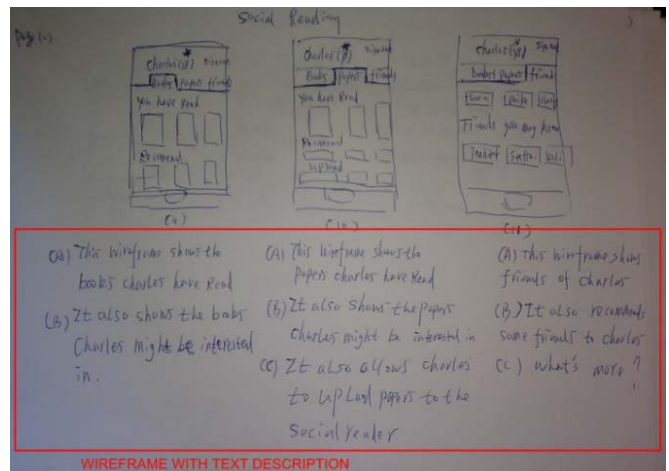 Social Reading
Charles(98)
Signout
Books Papers friends
You have Read
Recommend
(9)
Charles(98)
Signout
Books Papers friends
You have Read
Recommend
Upload
(10)
Charles(98)
Signout
books papers friends
Friends you may know
(11)
(A) This wireframe shows the
books charles have Read
(B) It also shows the books
Charles might be interested
in.
(A) This wireframe shows the
Papers charles have Read
(B) It also shows the papers
Charles might be interested in
(C) It also allows charles
to upload papers to the
Social reader
(A) This wireframe shows
friends of Charles
(B) It also recommends
some friends to charles
(C) What's more?
WIREFRAME WITH TEXT DESCRIPTION